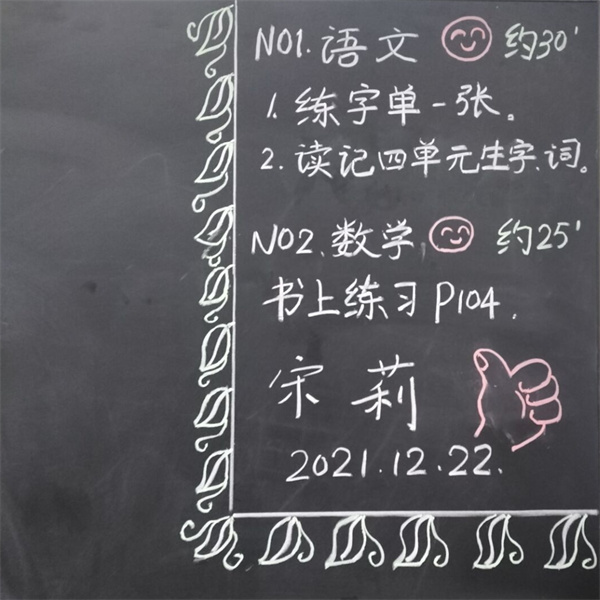 NO1.语文 约30'
1.练字单一张。
2.读记四单元生字、词。
NO2.数学 约25'
书上练习P104.
宋莉
2021.12.22.